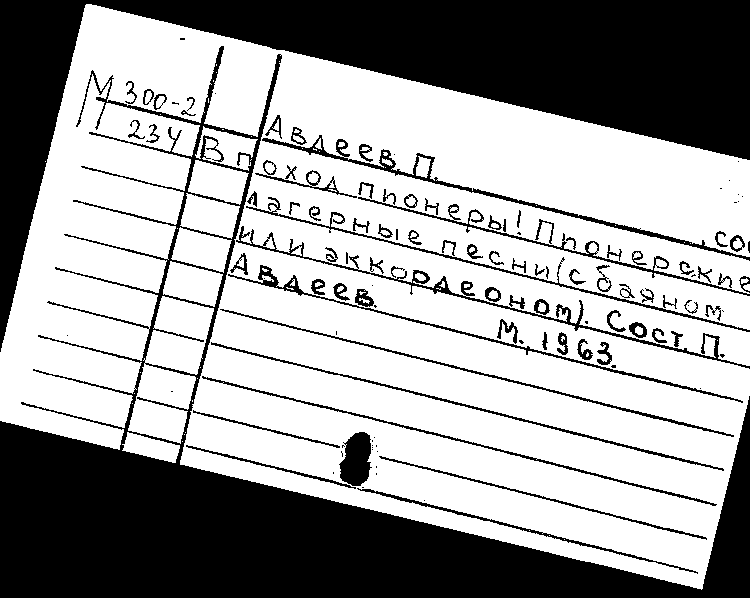 М 300-2
234
Авдеев, П.
, сос
В поход пионеры! Пионерские
лагерные песни (с баяном
или аккордеоном). Сост. П.
Авдеев.
М., 1963.